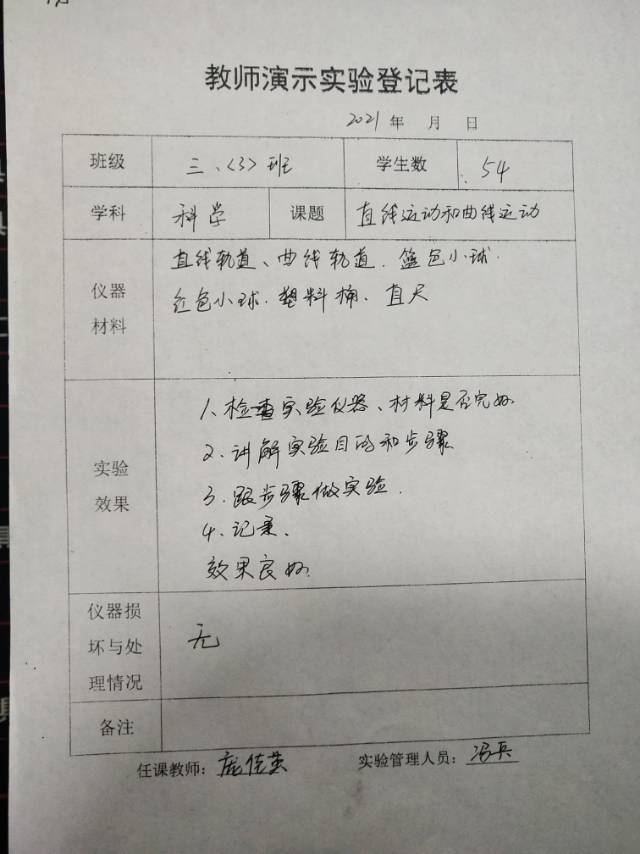 教师演示实验登记表
2021年 月 日
班级 三.<3>班 学生数 54
学科 科学 课题 直线运动和曲线运动
仪器材料
直线轨道、曲线轨道.篮色小球.
红色小球.塑料桶、直尺
实验效果
1、检查实验仪器、材料是否完好
2.讲解实验目的和步骤
3.跟步骤做实验.
4.记录.
效果良好.
仪器损坏与处理情况 无
备注
任课教师: 实验管理人员:冯兵